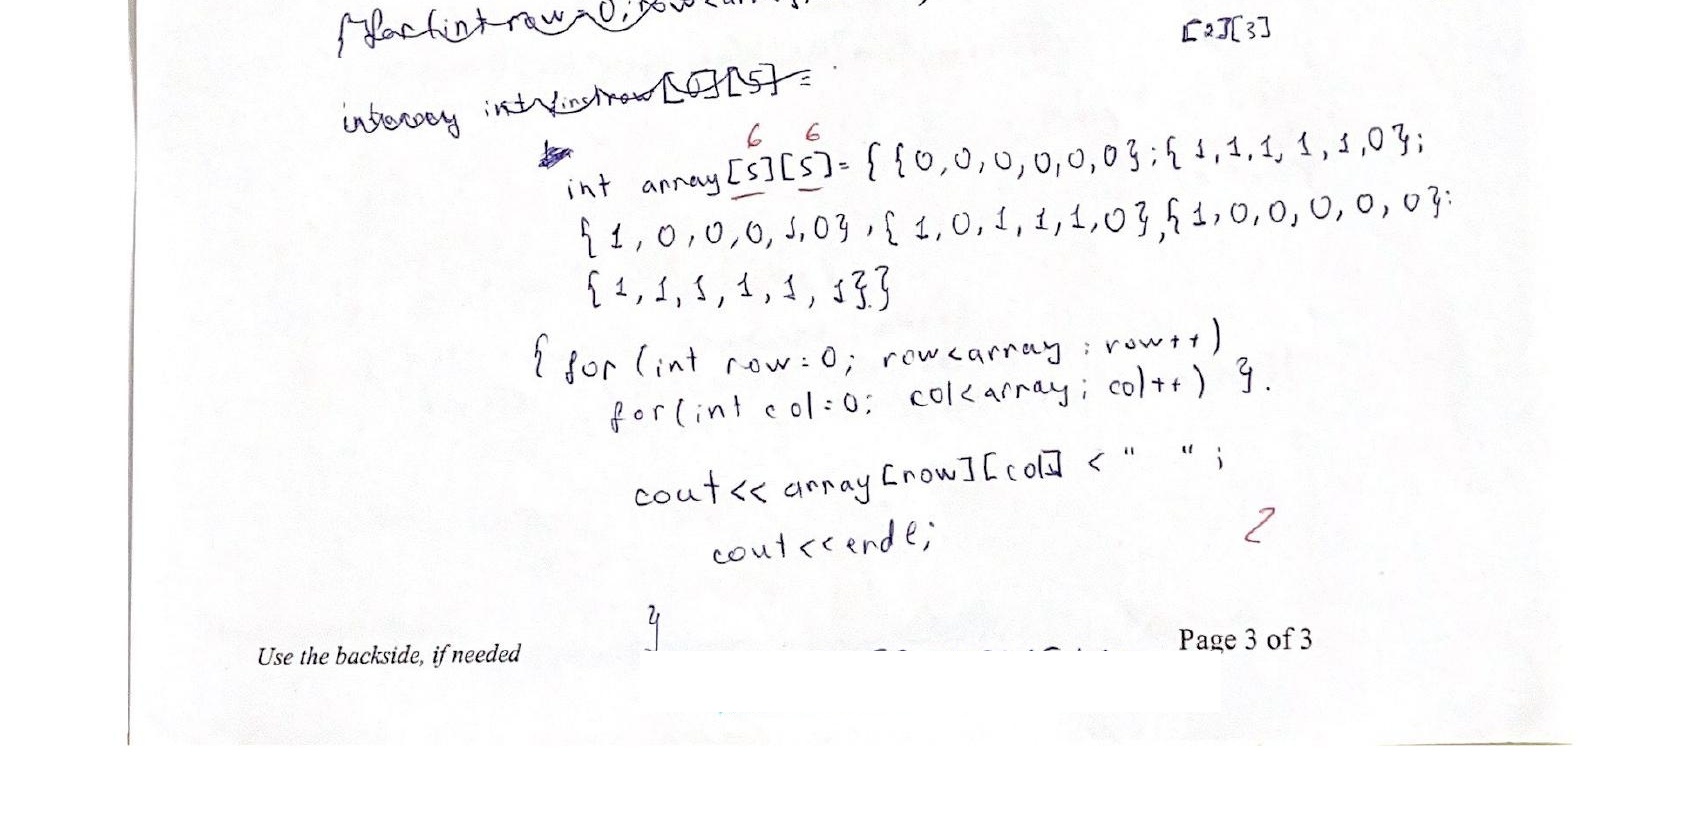 for(int row=0; row<
[2][3]
int
6 6
int array[5][5]= { {0,0,0,0,0,0};{ 1,1,1,1,1,0};
{ 1,0,0,0,1,0} ,{ 1,0,1,1,1,0},{ 1,0,0,0,0,0};
{ 1,1,1,1,1,1}}
{ for (int row=0; row<array ; row++)
for(int col=0; col<array; col++) }.
cout<< array [row][col] < " " ;
cout<<ende;
2
}
Use the backside, if needed
Page 3 of 3